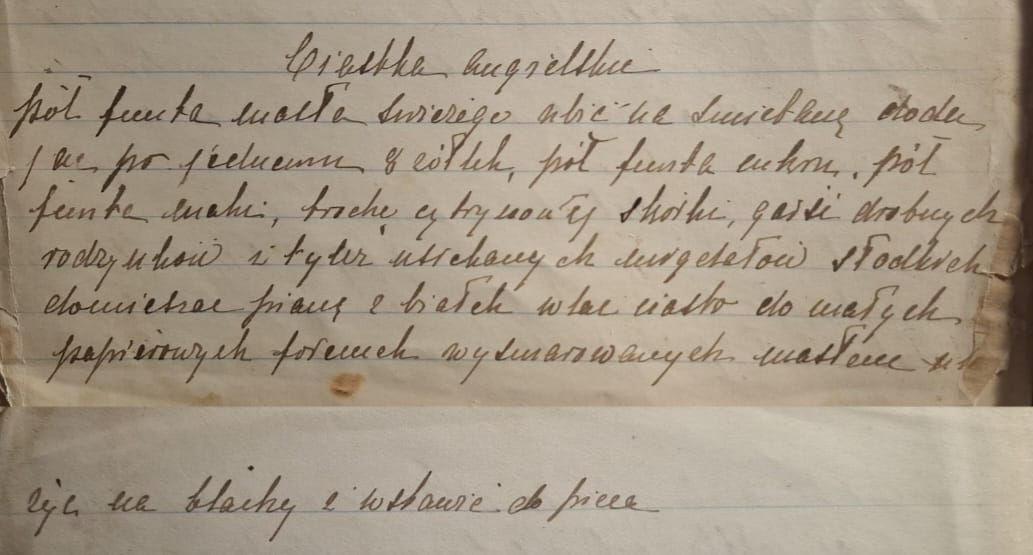 Ciastka angielskie
pół funta masła świeżego ubić na śmietanę doda
jac po jednemu 8 żółtek, pół funta cukru, pół
funta mąki, trochę cytrynowej skórki, garść drobnych
rodzynków i tyleż usiekanych migdałów słodkich
domieszac pianę z białek wlac ciasto do małych
papierowych foremek wysmarowanych masłem uło
życ na blachy i wstawić do pieca